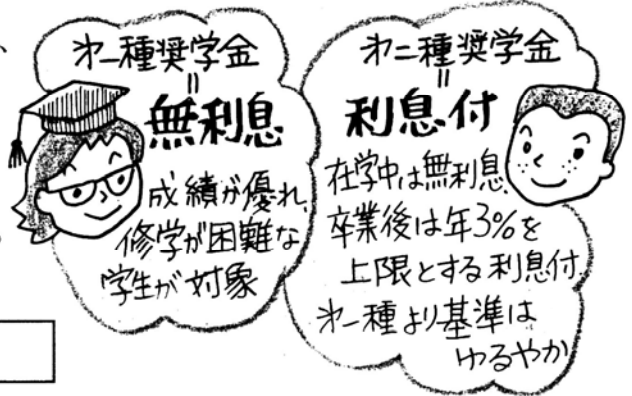 第一種奨学金
=
無利息
成績が優れ、
修学が困難な
学生が対象
第二種奨学金
=
利息付
在学中は無利息、
卒業後は年3%を
上限とする利息付。
第一種より基準は
ゆるやか